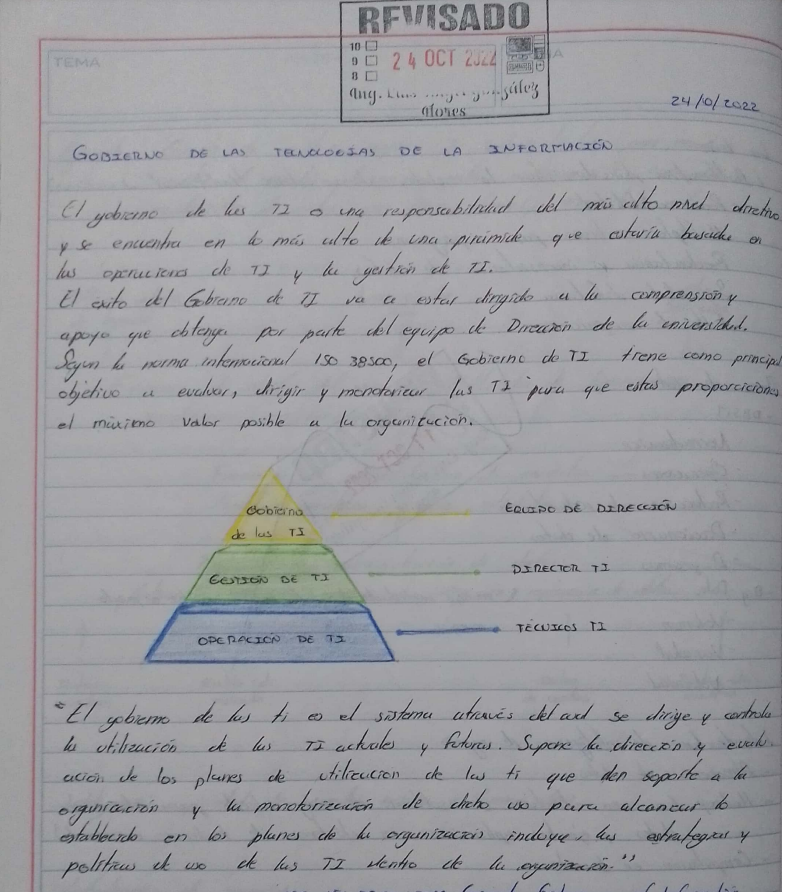 REVISADO
10
9 24 OCT 2022
8
Ing. González
Flores
TEMA
24/10/2022
GOBIERNO DE LAS TECNOLOGIAS DE LA INFORMACIÓN
El gobierno de las TI es una responsabilidad del más alto nivel directivo
y se encuentra en lo más alto de una pirámide que estaría basada en
las operaciones de TI y la gestión de TI.
El éxito del Gobierno de TI va a estar dirigido a la comprensión y
apoyo que obtenga por parte del equipo de Dirección de la universidad.
Segun la norma internacional ISO 38500, el Gobierno de TI tiene como principal
objetivo a evaluar, dirigir y monotorizar las TI para que estas proporcionen
el máximo valor posible a la organización.
Gobierno
de las TI
EQUIPO DE DIRECCIÓN
GESTIÓN DE TI
DIRECTOR TI
OPERACIÓN DE TI
TÉCNICOS TI
"El gobierno de las ti es el sistema através del cual se dirige y controla
la utilización de las TI actuales y futuras. Supone la dirección y evalu-
ación de los planes de utilizacion de las ti que den soporte a la
organización y la monotorización de dicho uso para alcanzar lo
establecido en los planes de la organización incluye, las estrategias y
políticas de uso de las TI dentro de la organización."